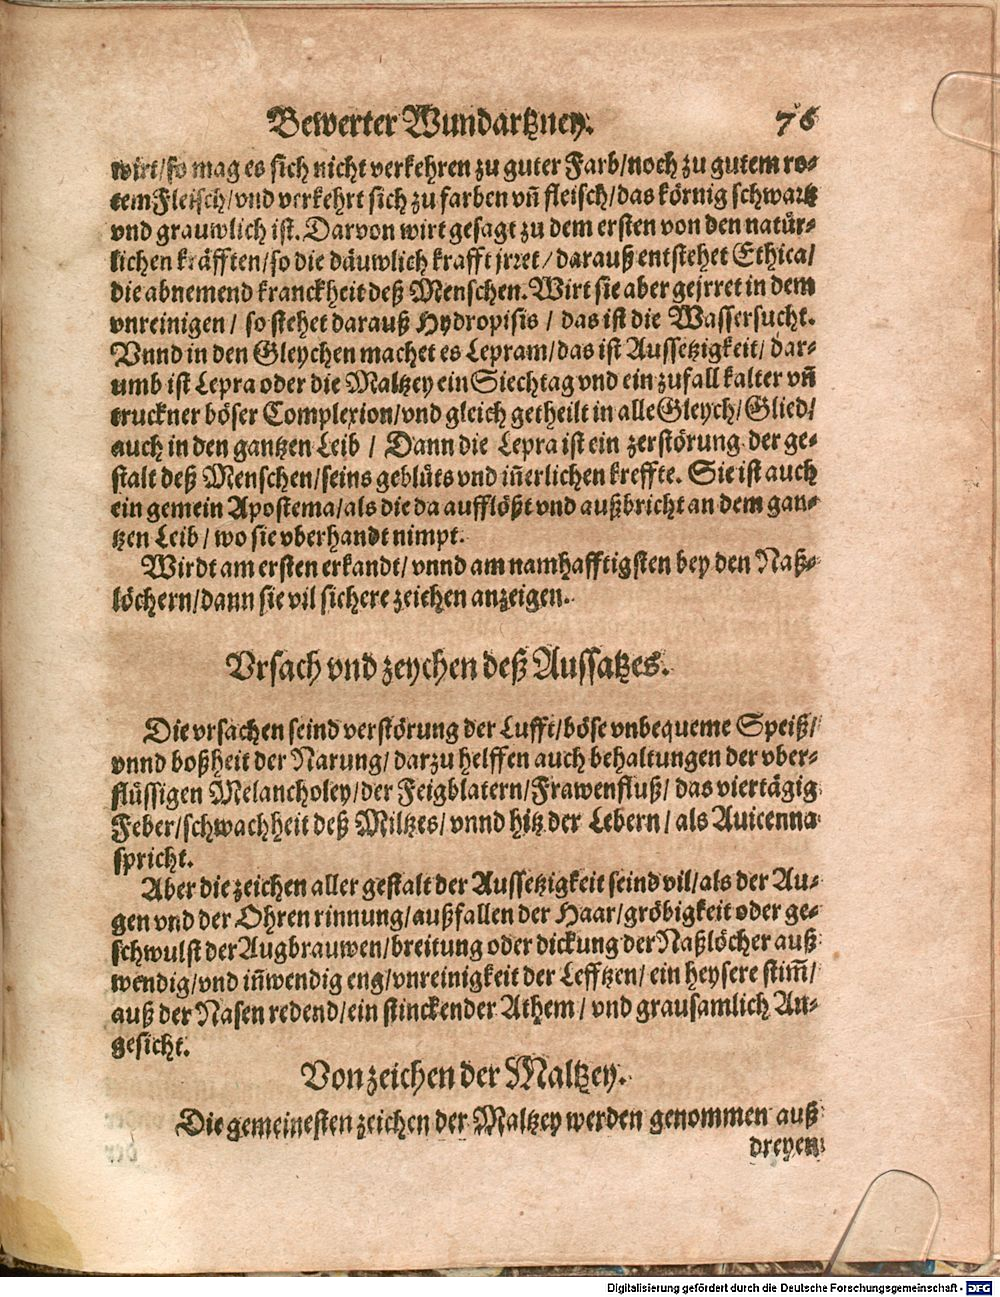 Bewerter Wundartzney. 76
wirt/so mag es sich nicht verkehren zu guter Farb/noch zu gutem ro-
tem Fleisch/vnd verkehrt sich zu farben vñ fleisch/das körnig schwartz
vnd grauwlich ist. Darvon wirt gesagt zu dem ersten von den natür-
lichen kräfften/so die däuwlich krafft jrret/darauß entstehet Ethica/
die abnemend kranckheit deß Menschen. Wirt sie aber gejrret in dem
vnreinigen/ so stehet darauß Hydropisis / das ist die Wassersucht.
Vnnd in den Gleychen machet es Lepram/das ist Aussetzigkeit/ dar-
umb ist Lepra oder die Maltzey ein Siechtag vnd ein zufall kalter vñ
truckner böser Complexion/vnd gleich getheilt in alle Gleych/Glied/
auch in den gantzen Leib / Dann die Lepra ist ein zerstörung der ge-
stalt deß Menschen/seins geblüts vnd iñerlichen kreffte. Sie ist auch
ein gemein Apostema/als die da aufflößt vnd außbricht an dem gan-
tzen Leib / wo sie vberhandt nimpt.
Wirdt am ersten erkandt/ vnnd am namhafftigsten bey den Naß-
löchern/dann sie vil sichere zeichen anzeigen.
Vrsach vnd zeychen deß Aussatzes.
Die vrsachen seind verstörung der Lufft/böse vnbequeme Speiß/
vnnd boßheit der Narung/ darzu helffen auch behaltungen der vber-
flüssigen Melancholey/der Feigblatern/Frawenfluß/ das viertägig
Feber/schwachheit deß Miltzes/ vnnd hitz der Lebern/ als Auicenna
spricht.
Aber die zeichen aller gestalt der Aussetzigkeit seind vil/als der Au-
gen vnd der Ohren rinnung/außfallen der Haar/gröbigkeit oder ge-
schwulst der Augbrauwen/breitung oder dickung der Naßlöcher auß-
wendig/vnd iñwendig eng/vnreinigkeit der Lefftzen/ ein heysere stim̃/
auß der Nasen redend/ein stinckender Athem/ vnd grausamlich An-
gesicht.
Von zeichen der Maltzey.
Die gemeinesten zeichen der Maltzey werden genommen auß
dreyen
Digitalisierung gefördert durch die Deutsche Forschungsgemeinschaft - DFG